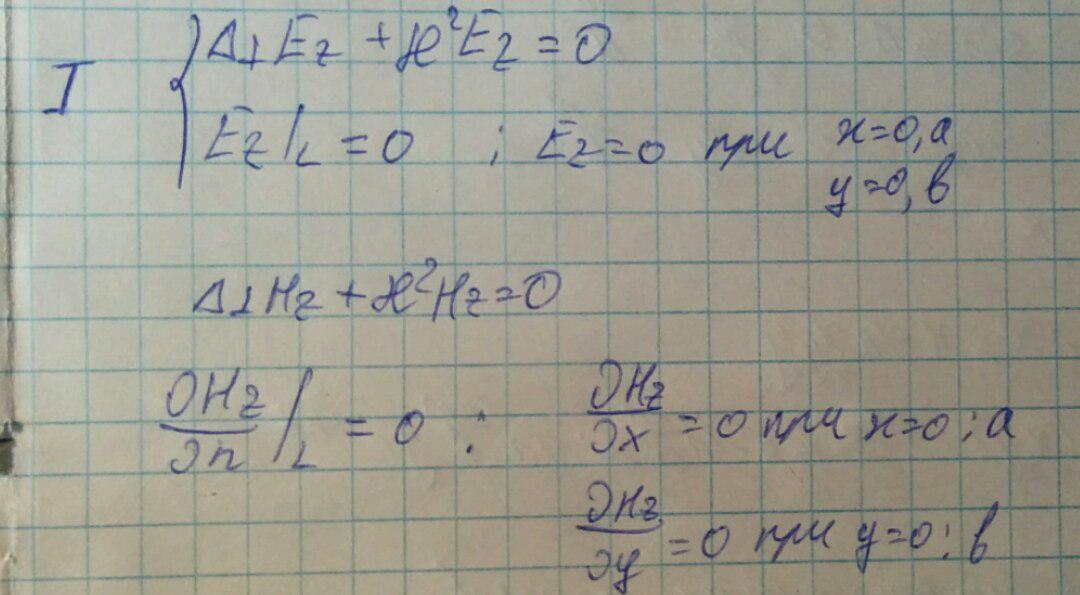 I
Δ⊥Ez + ℋ²Ez = 0
Ez/L = 0 ; Ez=0 при x=0,a
y=0,b
Δ⊥Hz + ℋ²Hz = 0
∂Hz/∂n /L = 0 : ∂Hz/∂x = 0 при x=0;a
∂Hz/∂y = 0 при y=0;b